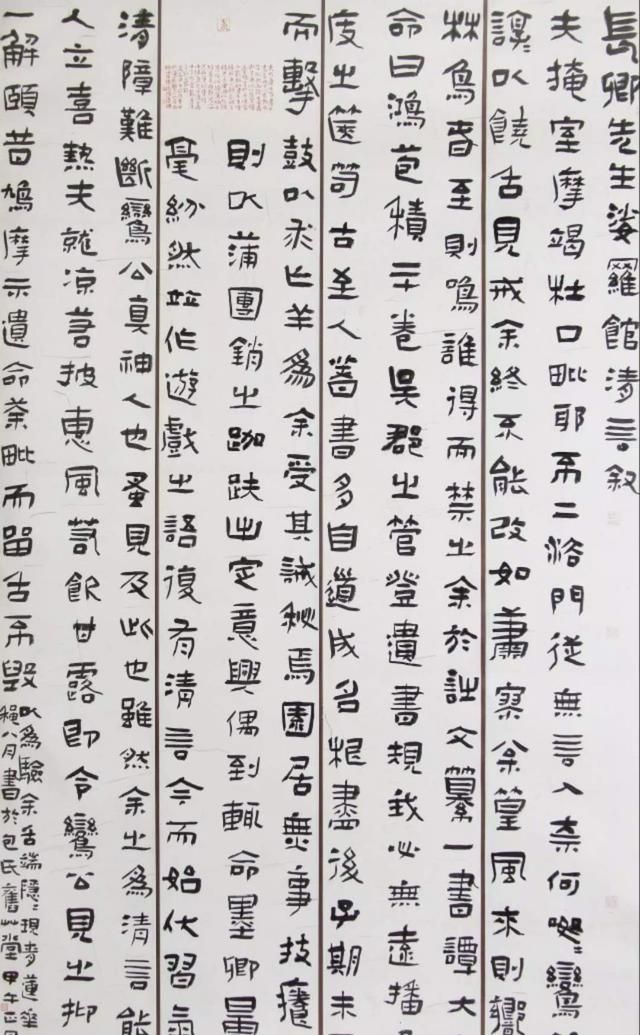 長卿先生娑羅館清言叙
夫掩室摩竭杜口毗耶不二法門從無言入奈何嘵嘵鸞
以饒舌見戒余終不能改如蕭寥篁風來則響
林鳥春至則鳴誰得而禁之余於註文纂一書譚大
命曰鴻苞積二十卷吳郡之管登遺書規我必無遠播
度之篋笥古至人著書多自道成名根盡後子期未
而擊鼓以求亡羊爲余受其誡秘焉園居無事技癢
則以蒲團銷之跏趺出定意興偶到輒命墨卿
毫紛然並作遊戲之語復有清言今而始伏習氣
清障難斷鸞公真神人也蚤見及此也雖然余之爲清言能
人立喜熱夫就涼若披惠風若飲甘露即令鸞公見之抑
一解頤昔鳩摩示遺命荼毗而留舌不毀以爲驗余舌端隱隱現青蓮華
穐八月書於包氏舊草堂甲午